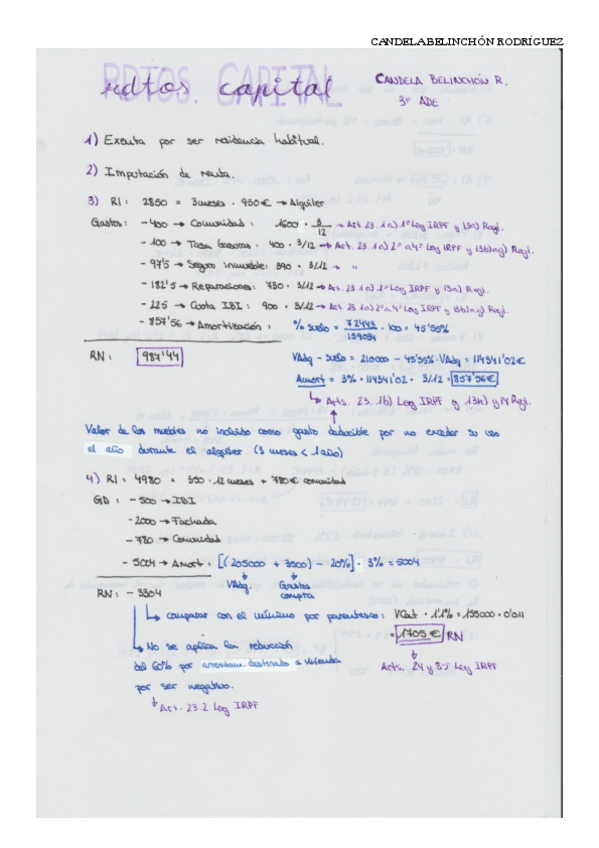 CANDELA BELINCHÓN RODRÍGUEZ
RDTOS. CAPITAL
rdtos capital
CANDELA BELINCHÓN R.
3º ADE
1) Exenta por ser residencia habitual.
2) Imputación de renta.
3) RI: 2850 = 3 meses · 950€ → Alquiler
Gastos: -400 → Comunidad: 1600 · 3/12 → Art. 23. 1 a) 1º Ley IRPF y 13a) Regl.
-100 → Tasa basuras: 400 · 3/12 → Art. 23. 1 a) 2º a 4º Ley IRPF y 13b) Regl.
-97'5 → Seguro inmueble: 390 · 3/12 → "
-182'5 → Reparaciones: 730 · 3/12 → Art. 23. 1 a) 1º Ley IRPF y 13a) Regl.
-225 → Cuota IBI: 900 · 3/12 → Art. 23 1a) 2º a 4º Ley IRPF y 13b) Regl.
-857'56 → Amortización: % suelo = 72443/159034 · 100 = 45'55%
RN: 987'44
VAdq - suelo = 210000 - 45'55% · VAdq = 114341'02€
Amort = 3% · 114341'02 · 3/12 = 857'56€
↳ Arts. 23. 1b) Ley IRPF y 13h) y 14 Regl.
Valor de los muebles no incluido como gasto deducible por no exceder su uso
el año durante el alquiler (3 meses < 1 año)
4) RI: 4980 = 350 · 12 meses + 780€ comunidad
GD: -500 → IBI
-2000 → Fachada
-780 → Comunidad
-5004 → Amort: [(205000 + 3500) - 20%] · 3% = 5004
VAdq. Gastos
compra
RN: -3304
↳ comparar con el mínimo por parentesco: VCat · 1'1% = 155000 · 0'011
= 1705€ RN
↳ No se aplica la reducción
del 60% por arrendam. destinado a vivienda
por ser negativo.
Arts. 24 y 85 Ley IRPF
↳ Art. 23.2 Ley IRPF